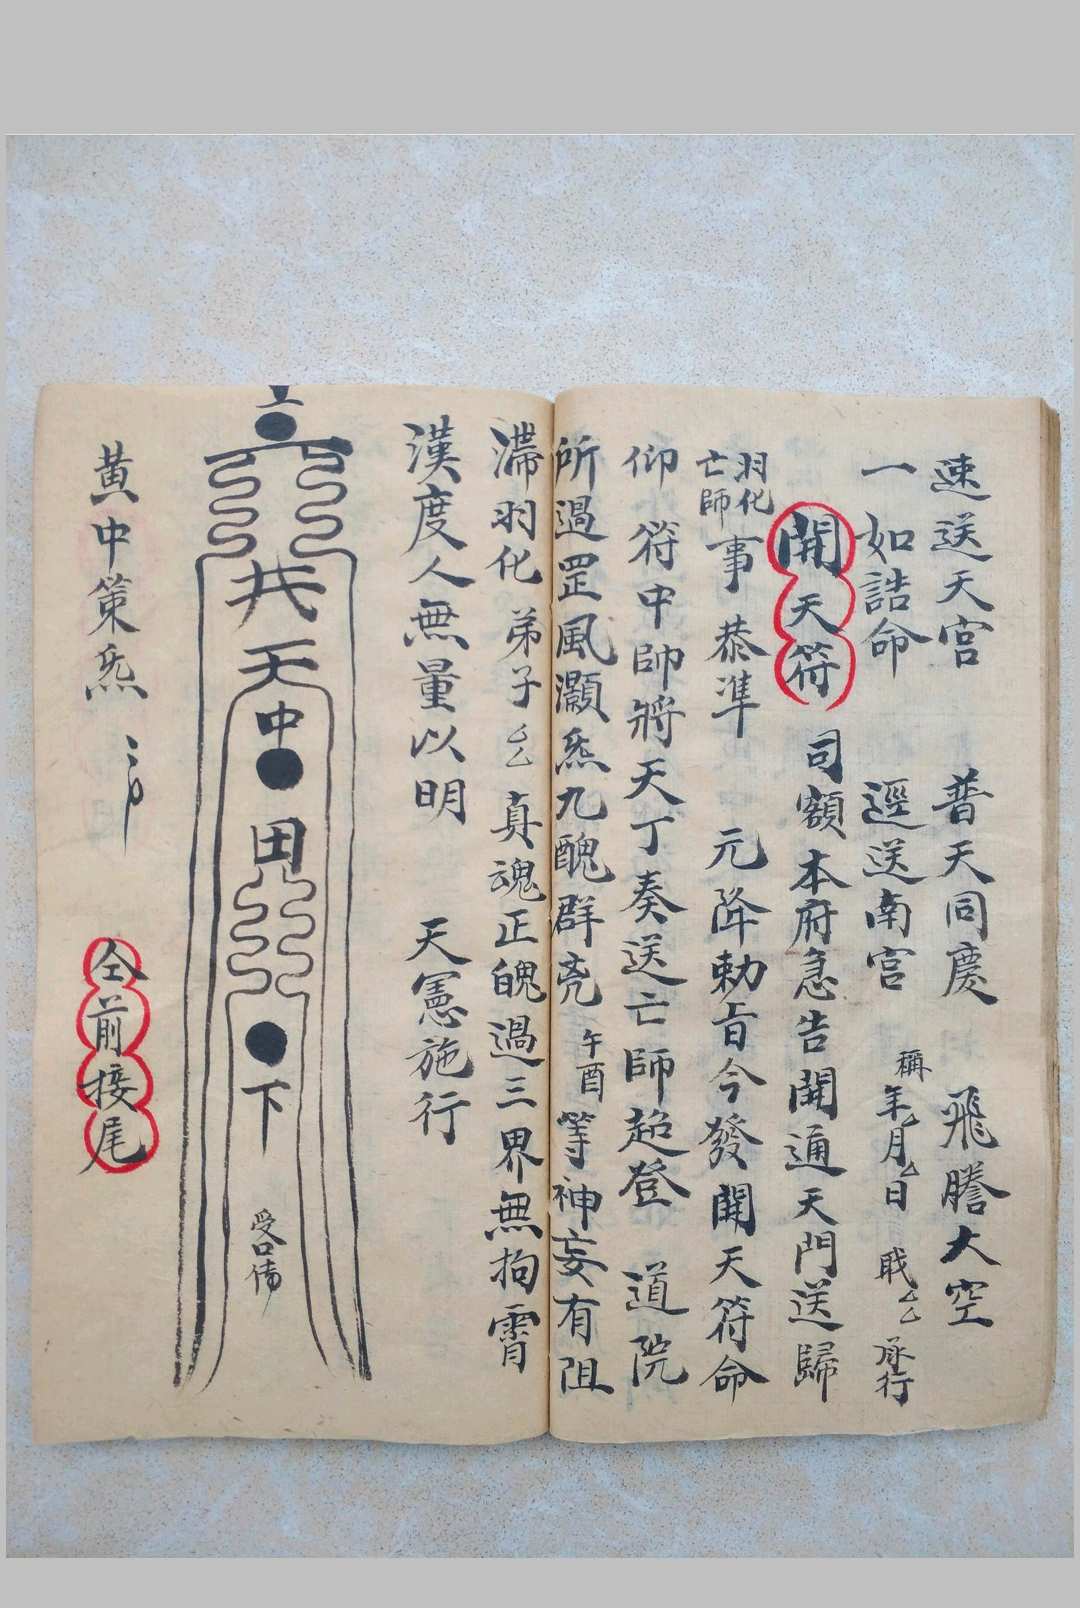 速送天宮　普天同慶　飛騰大空
一如誥命　逕送南宮　稱年月日　職厶承行
開天符　司額本府急告開通天門送歸
羽化
亡師
事恭準　元降勅旨今發開天符命
仰　符中帥將天丁奏送亡師超登　道院
所過罡風灝炁九醜群尭午酉等神妄有阻
滯羽化弟子厶厶真魂正魄過三界無拘霄
漢度人無量以明　天憲施行
共天中
田
下
受口俻
黄中策炁
仝前接尾